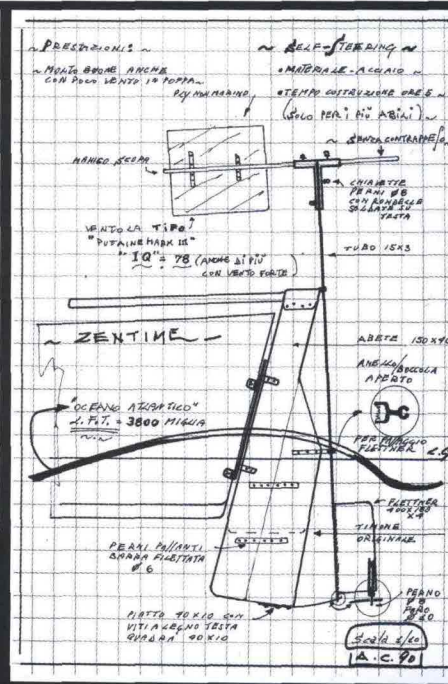 ~ PRESTAZIONI: ~
~ MOLTO BUONE ANCHE
CON POCO VENTO IN POPPA ~
~ SELF-STEERING ~
• MATERIALE - ACCIAIO ~
• TEMPO COSTRUZIONE ORE 5 ~
(SOLO PER I PIÙ ABILI) ~
~ SENZA CONTRAPPESO
PLY NON MARINO
MANICO SCOPA
CHIAVETTE
PERNI Ø8
CON RONDELLE
SALDATE SU
TESTA
VENTOLA TIPO
"PUTAINE MARK III"
"IQ" = 78 (ANCHE DI PIÙ
CON VENTO FORTE)
TUBO 15X3
~ ZENTIME ~
ABETE 150X40
ANELLO/BOCCOLA
APERTO
"OCEANO ATLANTICO"
L.F.T. = 3800 MIGLIA
PER
FLETTNER
FLETTNER
X4
TIMONE
ORIGINALE
PERNI PASSANTI
BARRA FILETTATA
Ø 6
PIATTO 40X10 CON
VITI A LEGNO TESTA
QUADRA 40X10
PERNO
Ø 8
Scala 1/10
A.C. 90